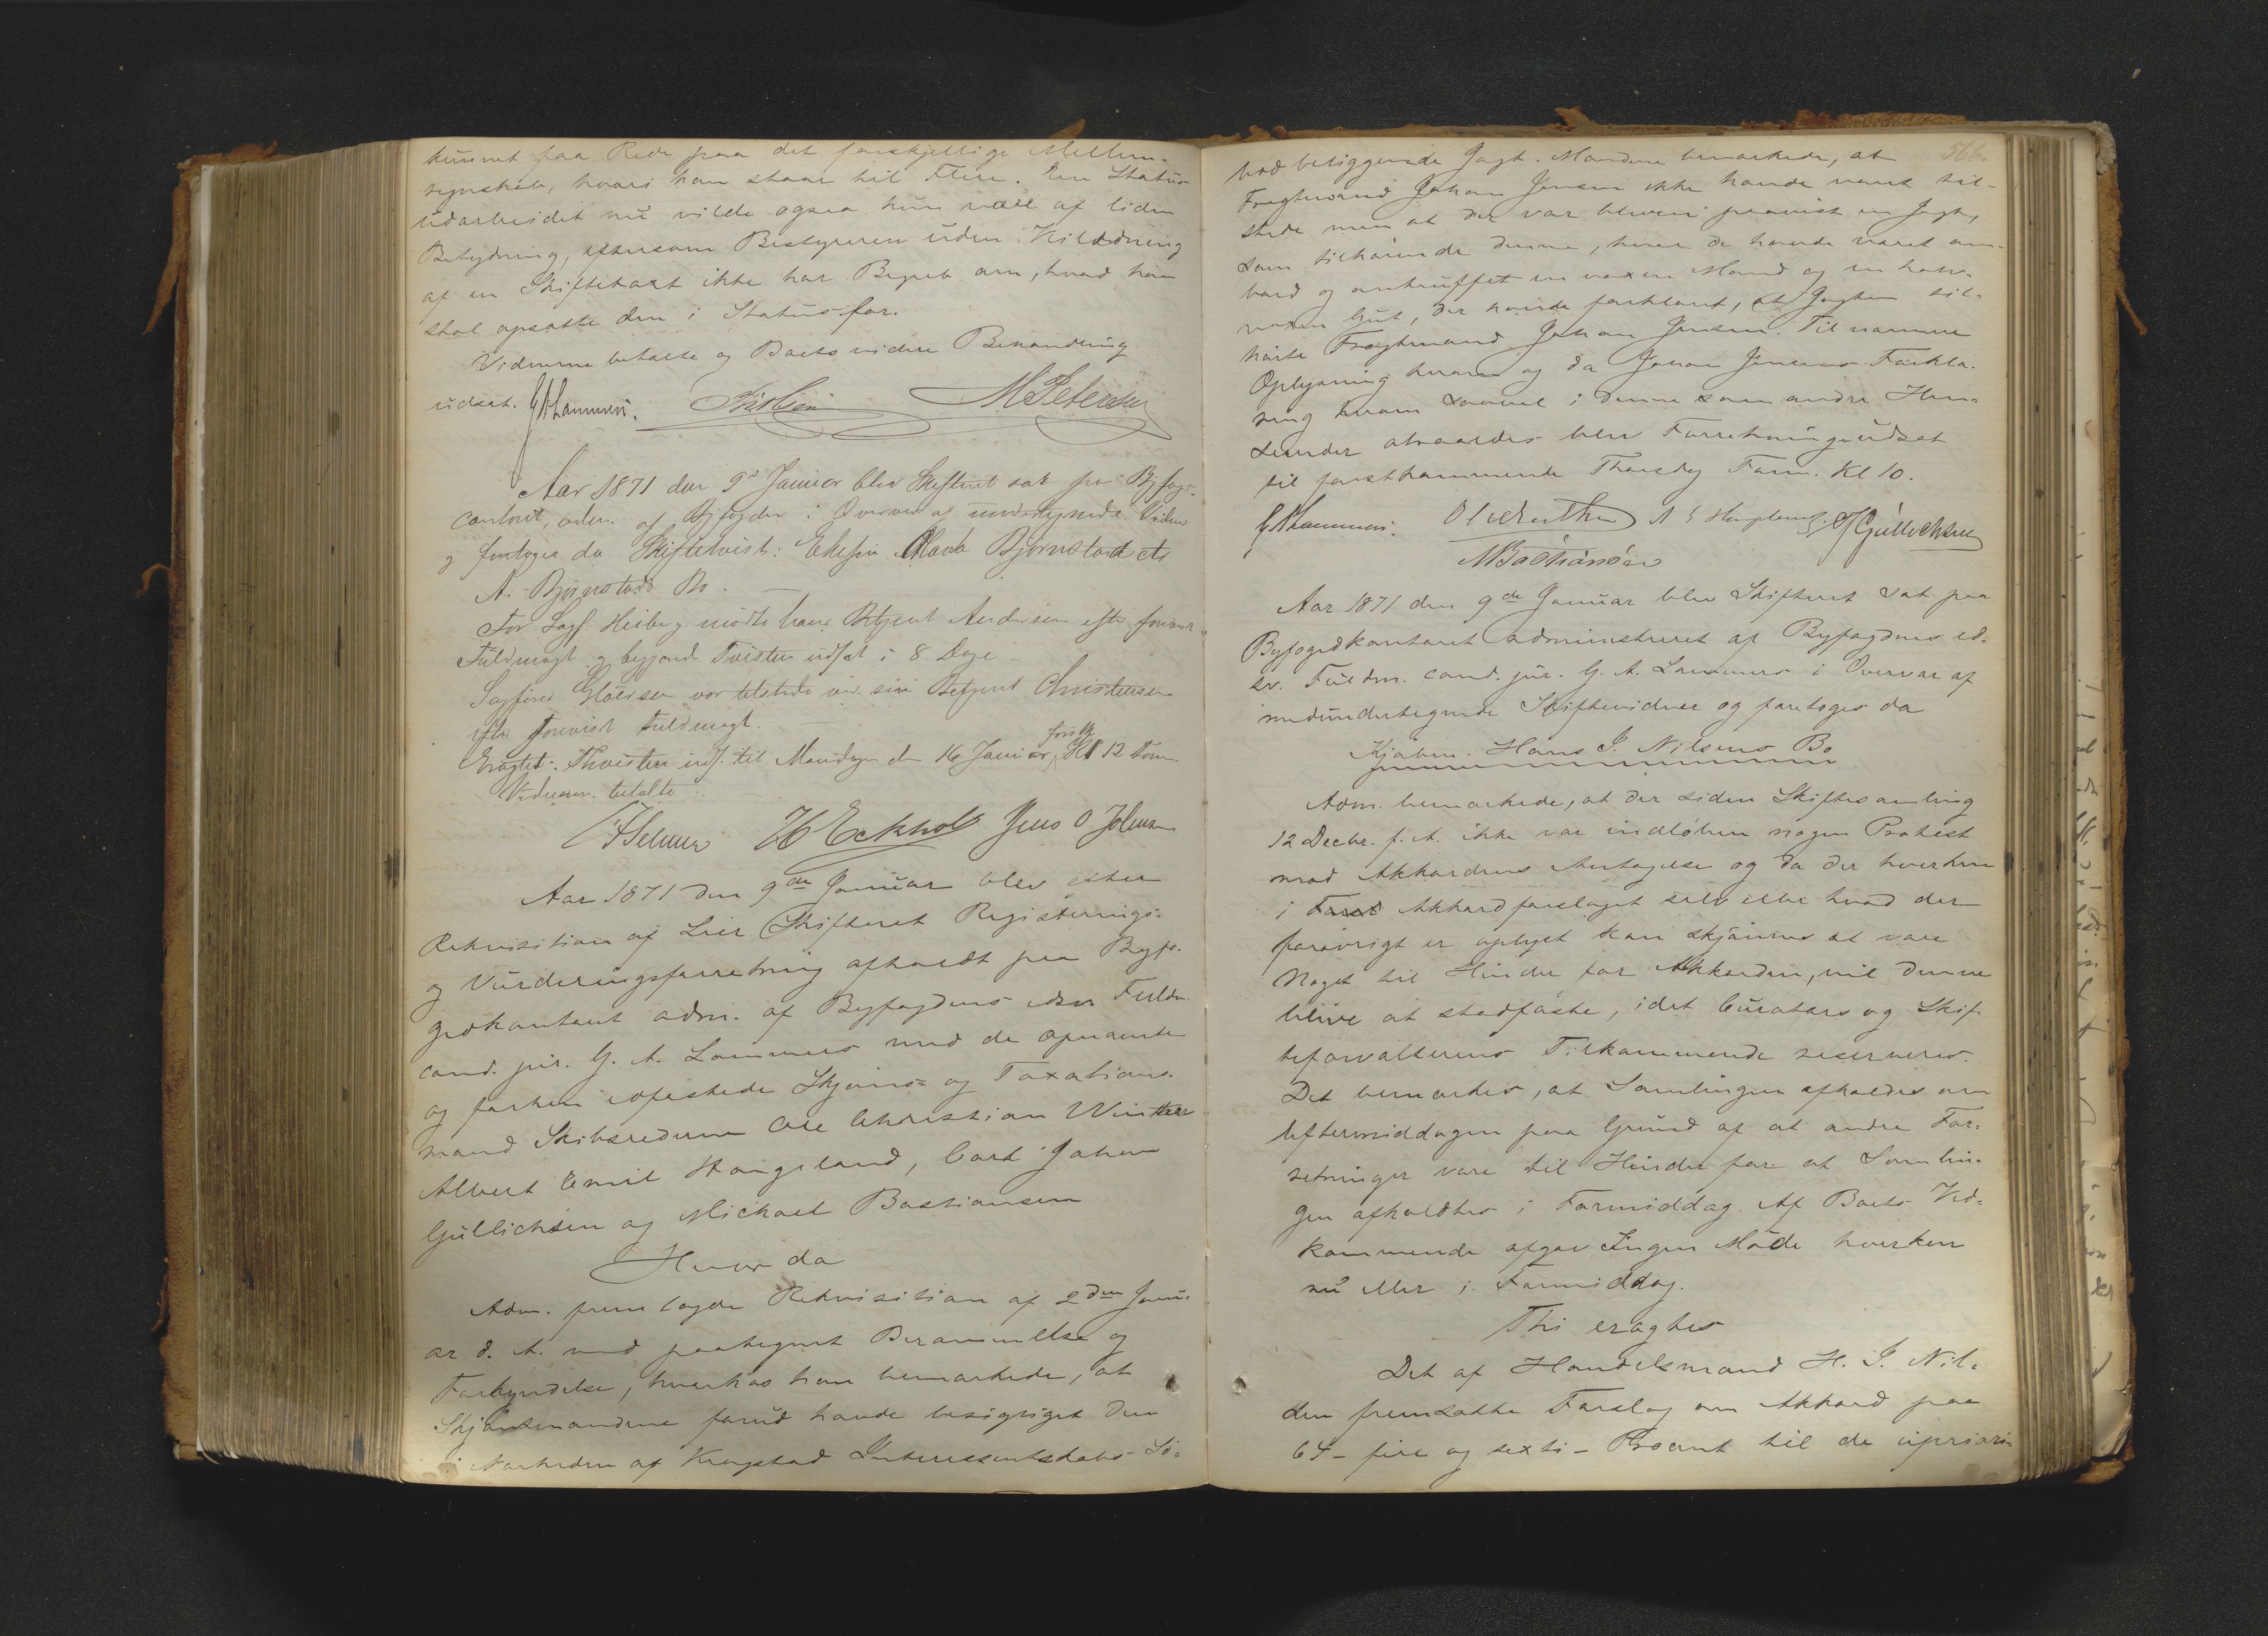 kunnet faa Rede paa det forskjellige Mellem-
regnskab, hvori han staar til Flere. En Status
udarbeidet nu vilde ogsaa kun være af liden
Betydning, eftersom Bestyreren uden Veiledning
af en Skifteret ikke har Begreb om, hvad han
skal opsætte den i Status for.
Vidnerne betalte og Boets videre Behandling
udsat. G A Lammers. M Petersen
Aar 1871 den 9de Januar blev Skifteret sat paa Byfogd-
contoret, adm. af Byfogden i Overvær af undertegnede Vidner
og foretoges da Skiftetvist: Olava Bjørnstad cts
A. Bjørnstads Bo.
For Sagf. Heiberg mødte hans Betjent Andersen efter forevist
Fuldmagt og begjærede Tvisten udsat i 8 Dage
Sagfører Gløersen var tilstede ved sin Betjent Christensen
efter forevist Fuldmagt.
Eragtet: Thvisten uds. til Mandagen den 16 Januar førstk. Kl 12 Form.
Vidnerne betalte
H Eckholt Jens O Johnsen
Aar 1871 den 9de Januar blev efter
Rekvisition af Lier Skifteret Registrerings-
og Vurderingsforretning afholdt paa Byfo-
gedkontoret adm. af Byfogdens edsv. Fuldm.
cand. jur. G. A. Lammers med de opnævnte
og forhen edfæstede Skjøns- og Taxations-
mænd Skibsrederne Ole Christian Winther
Albert Emil Haugeland, Carl Johan
Gullichsen og Michael Bastiansen
Hvor da
Adm. fremlagde Rekvisition af 2den Janu-
ar d. A. med paategnet Berammelse og
Forkyndelse, hvorhos han bemærkede, at
Skjønsmændene forud havde besigtiget den
i Nærheden af Krogstad Interessentskabs Sø-
566.
bod beliggende Jagt. Mændene bemærkede, at
Fragtmand Johan Jensen ikke havde været til-
stede men at der var bleven paavist en Jagt,
som tilhørende denne, hvor de havde været om-
bord og antruffet en voxen Mand og en halv-
voxen Gut, der havde forklaret, at Jagten til-
hørte Fragtmand Johan Jensen. Til nærmere
Oplysning herom og da Johan Jensens Forkla-
ring herom saavel i denne som andre Hen-
seender attraaedes blev Forretningen udsat
til førstkommende Thorsdag Form. Kl 10.
G A Lammers. O C Winther A E Haugeland. C J Gullichsen
M Bastiansen
Aar 1871 den 9de Januar blev Skifteret sat paa
Byfogedkontoret administreret af Byfogdens ed-
sv. Fuldm. cand. jur. G. A. Lammers i Overvær af
medundertegnede Skiftevidner og foretoges da
Kjøbm. Hans J. Nilsens Bo
Adm. bemærkede, at der siden Skiftesamling
12 Decbr. f. A. ikke var indløben nogen Protest
mod Akkordens Antagelse og da der hverken
i Akkordforslaget selv eller hvad der
forøvrigt er oplyst kan skjønnes at være
Noget til Hinder for Akkorden, vil denne
blive at stadfæste, idet Curators og Skif-
teforvalterens Tilkommende reserveres.
Det bemærkes, at Samlingen afholdes om
Eftermiddagen paa Grund af at andre For-
retninger vare til Hinder for at Samlin-
gen afholdtes i Formiddag. Af Boets Ved-
kommende afgav Ingen Møde hverken
nu eller i Formiddag.
Thi eragtes
Det af Handelsmand H. J. Nil-
sen fremsatte Forslag om Akkord paa
64 - fire og sexti - Procent til de uprivi-